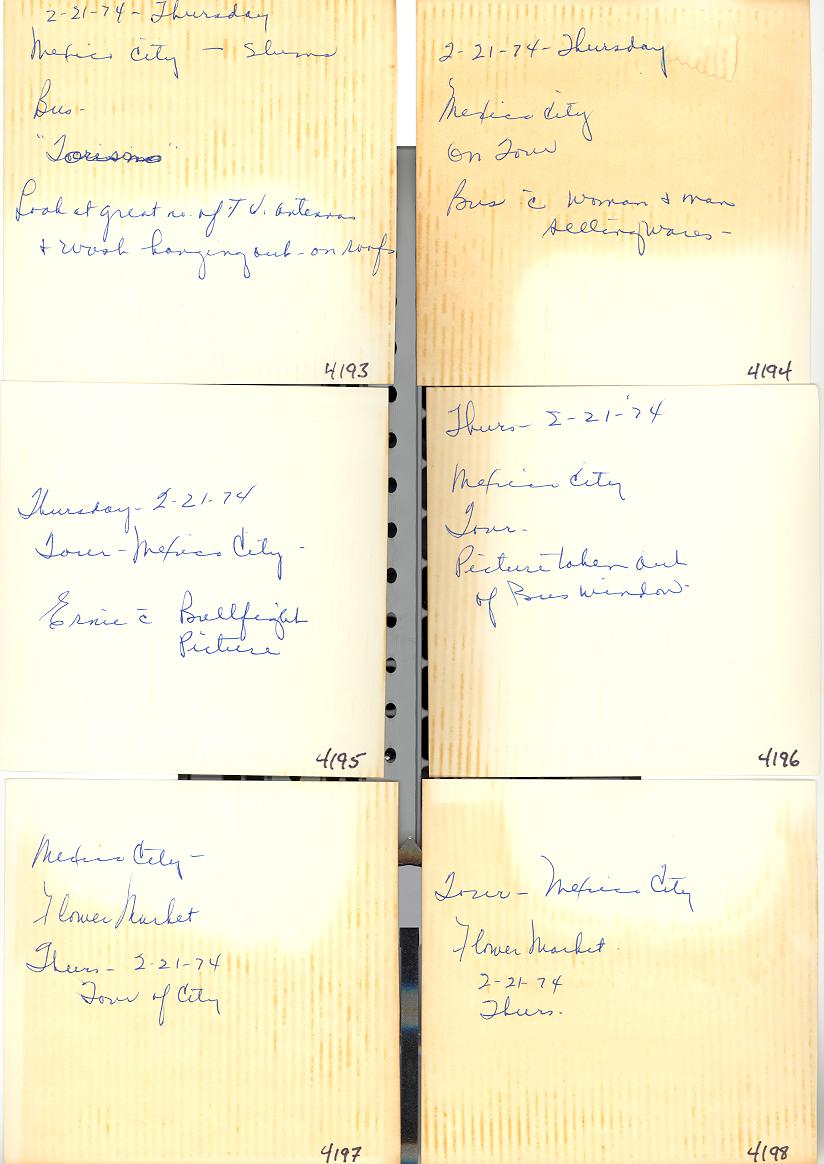 2-21-74 - Thursday
Mexico City - Slums
Bus -
"Torismo"
Look at great no. of T.V. antennas
& wash hanging out - on roofs
4193
2-21-74 - Thursday
Mexico City
On Tour
Bus c̄ woman & man
selling wares -
4194
Thursday - 2-21-74
Tour - Mexico City -
Ernie c̄ Bullfight
Picture
4195
Thurs - 2-21-'74
Mexico City
Tour -
Picture taken out
of Bus window -
4196
Mexico City -
Flower Market
Thurs - 2-21-74
Tour of City
4197
Tour - Mexico City
Flower Market
2-21-74
Thurs.
4198